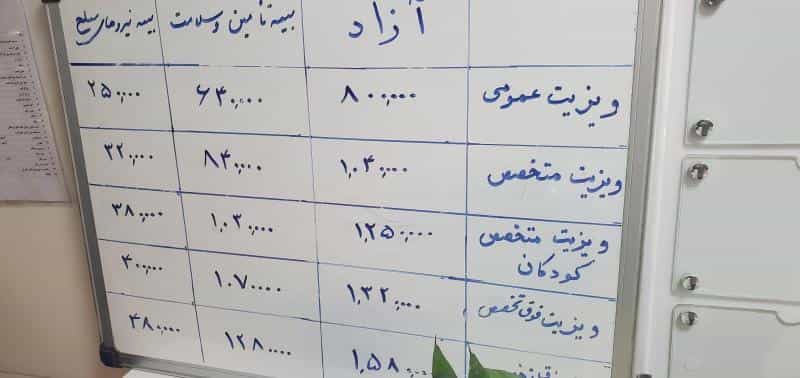 آزاد بیمه تأمین و سلامت بیمه نیروهای مسلح
ویزیت عمومی ۸۰۰,۰۰۰ ۶۴۰,۰۰۰ ۲۵۰,۰۰۰
ویزیت متخصص ۱,۰۴۰,۰۰۰ ۸۴۰,۰۰۰ ۳۲۰,۰۰۰
ویزیت متخصص ۱,۲۵۰,۰۰۰ ۱,۰۲۰,۰۰۰ ۳۸۰,۰۰۰
کودکان
ویزیت فوق تخصص ۱,۳۲۰,۰۰۰ ۱۰۷۰,۰۰۰ ۴۰۰,۰۰۰
۱,۵۸۰,۰۰۰ ۱۲۸۰,۰۰۰ ۴۸۰,۰۰۰